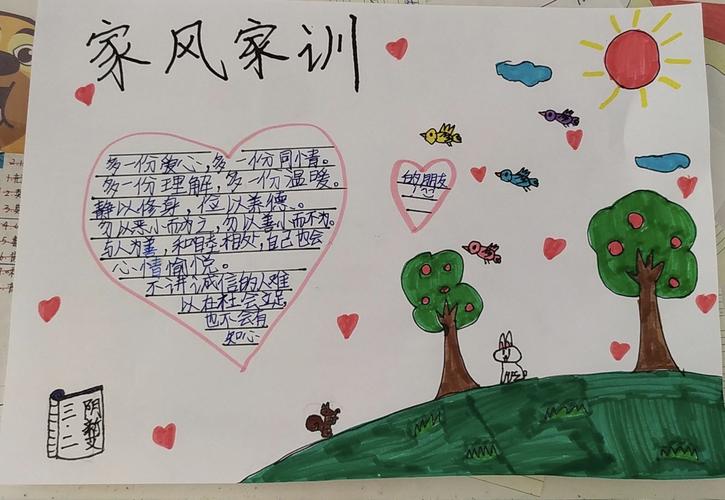 家风家训
多一份爱心,多一份同情。
多一份理解,多一份温暖。
静以修身,俭以养德。
勿以恶小而为之,勿以善小而不为。
与人为善,和睦相处,自己也会
心情愉悦。
不讲诚信的人难
以在社会立足
也不会有
知心
的朋友
三·二
阴